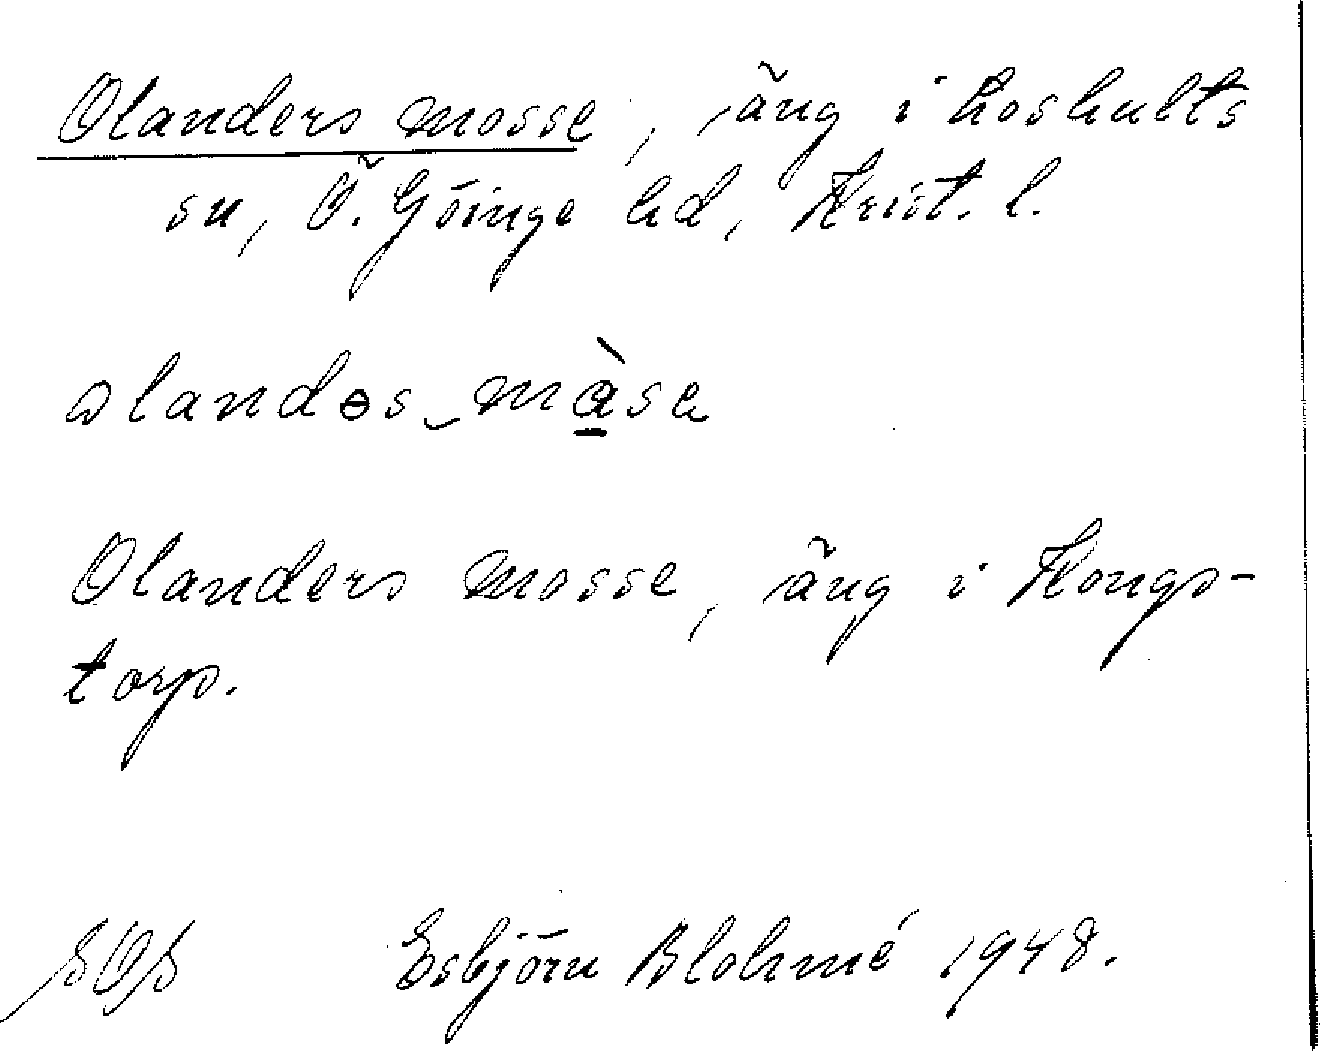 Olanders mosse, äng i Loshults
sn, Ö. Göinge hd, Krist. l.
olandəs_mɑ̀sɑ
Olanders mosse, äng i Kongs-
torp.
Esbjörn Blohmé 1948.